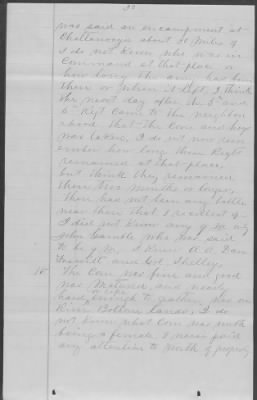 was said an encampment at
Chattanooga about 20 miles off
I do not know who was in
command at that place or
how long the army has been
there or when it left, I think
the next day after the 5" and
6" Regt came to the neighbor
rhood that the corn and hogs
was taken, I do not now rem
ember how long these Regts
remained at that place
but think they remained
there two months or longer,
there has not been any battle
near there that I recollect of
I did not know any of the only
John Gamble who was said
to be q m, I knew A. A. Van
and Col. Shelley.
15 The corn was fine and good
was matured and nearly
hard enough to gather, was on
River Bottom lands, I do
not know what corn was worth
being a female, I never paid
any attention to worth of property